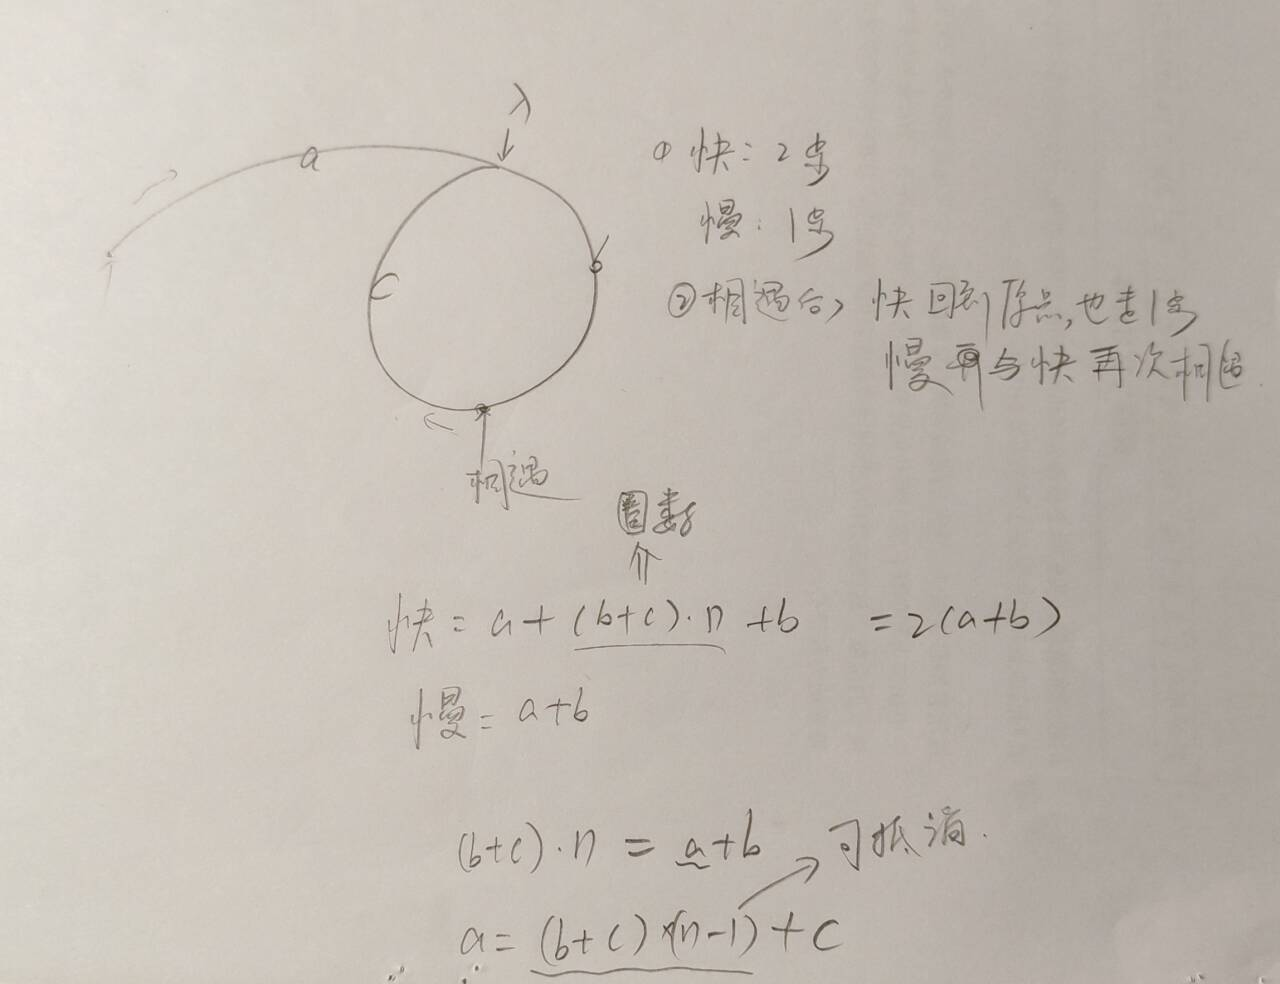 入
a
① 快：2步
慢：1步
C
②相遇后，快回到原点，也走1步
慢再与快再次相遇
相遇
圈数
快 = a+(b+c)·n +b =2(a+b)
慢= a+b
(b+c)·n = a+b
可抵消.
a= (b+c)×(n-1)+c